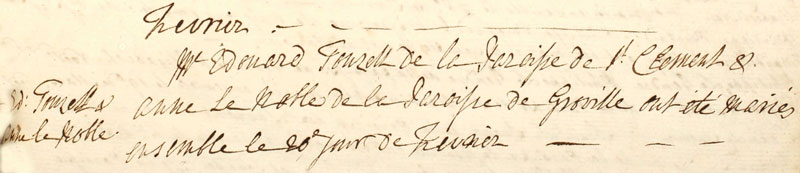 Fevrier
Mr Edouard Touzell de la Paroisse de St. Clement &
Ed: Touzell &
anne Le Noble de la Paroisse de Groville ont été Mariés
anne le Noble
ensemble le 20e jour de Fevrier